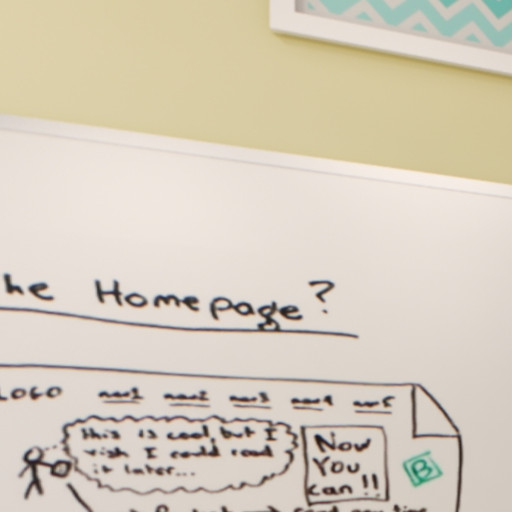 he Homepage?
LOGO nav1 nav2 nav3 nav4 nav5
this is cool but I
wish I could read
it later...
Now
You
can!!
B